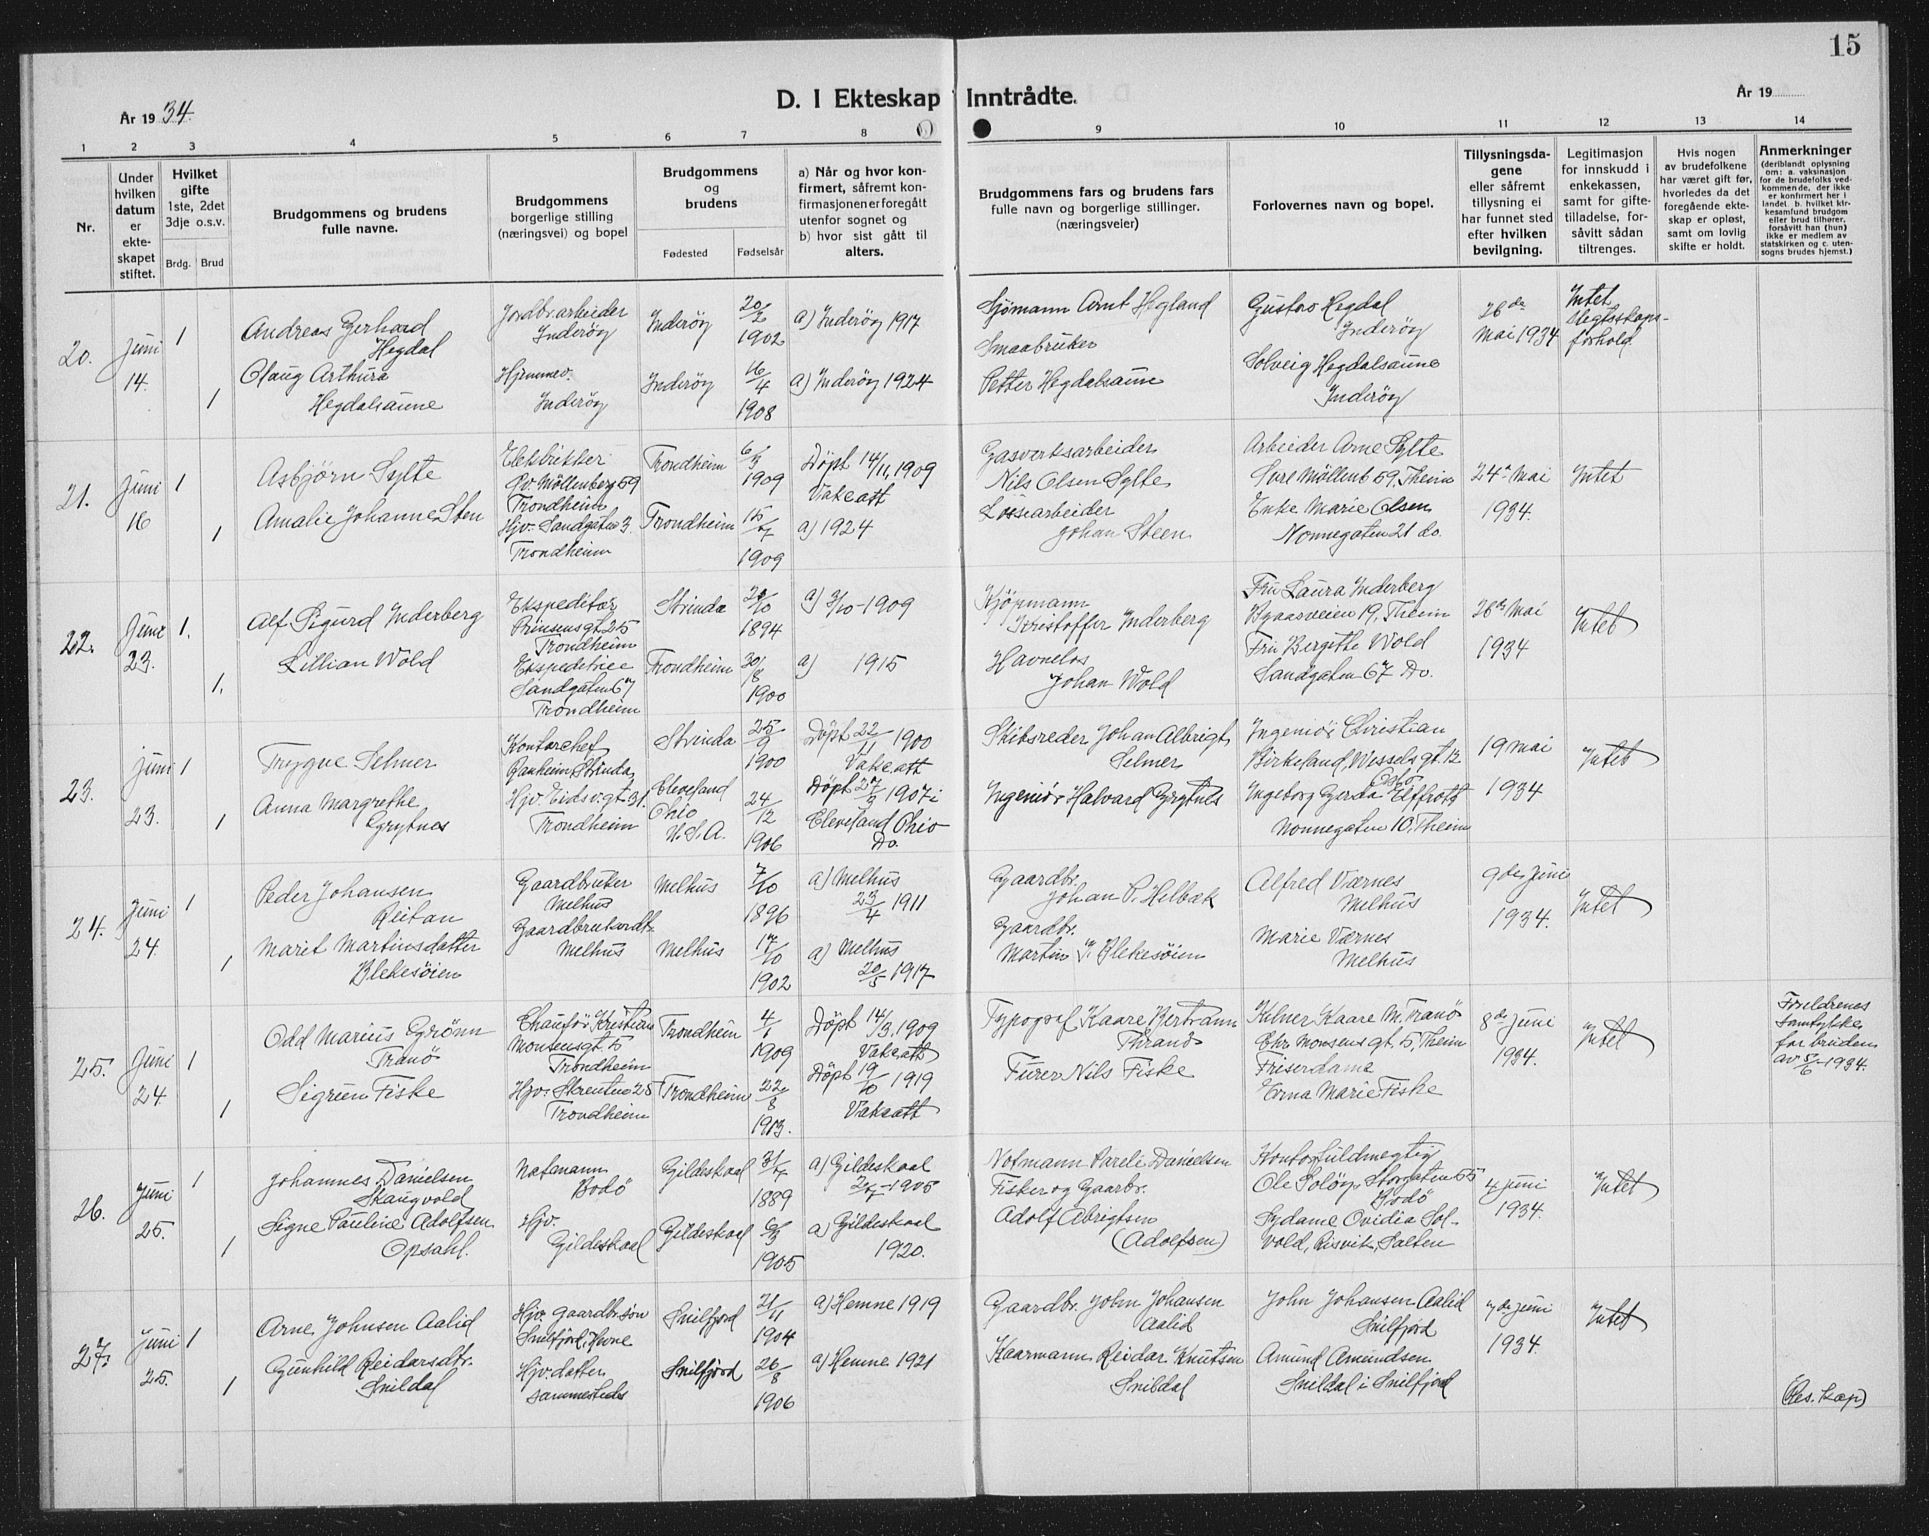 15
D. I Ekteskap Inntrådte.
År 1934.
År 19
1 2 3 4 5 6 7 8 9 10 11 12 13 14
Nr.
Under
hvilken
datum
er
ekte-
skapet
stiftet.
Hvilket
gifte
1ste, 2det
3dje o.s.v.
Brdg. Brud
Brudgommens og brudens
fulle navne.
Brudgommens
borgerlige stilling
(næringsvei) og bopel
Brudgommens
og
brudens
Fødested Fødselsår
a) Når og hvor kon-
firmert, såfremt kon-
firmasjonen er foregått
utenfor sognet og
b) hvor sist gått til
alters.
Brudgommens fars og brudens fars
fulle navn og borgerlige stillinger.
(næringsveier)
Forlovernes navn og bopel.
Tillysningsda-
gene
eller såfremt
tillysning ei
har funnet sted
efter hvilken
bevilgning.
Legitimasjon
for innskudd i
enkekassen,
samt for gifte-
tilladelse, for-
såvitt sådan
tiltrenges.
Hvis nogen
av brudefolkene
har været gift før,
hvorledes da det
foregående ekte-
skap er opløst,
samt om lovlig
skifte er holdt.
Anmerkninger
(deriblandt oplysning
om: a. vaksinasjon
for de brudefolks ved-
kommende, der ikke
er konfirmert her i
landet. b. hvilket kir-
kesamfund brudgom
eller brud tilhører,
forsåvitt han (hun)
ikke er medlem av
statskirken og c. uten-
sogns brudes hjemst.)
20.
Juni
14.
1
1
Andreas Gerhard
Hegdal
Olaug Arthura
Hegdalsaune
Jordbr.arbeider
Inderøy
Hjemmev.
Inderøy
Inderøy
Inderøy
20/2
1902
16/4
1908
a) Inderøy 1917
a) Inderøy 1924
Sjömann Arnt Hegland
Smaabruker
Petter Hegdalsaune
Gustav Hegdal
Inderøy
Solveig Hegdalsaune
Inderøy
26de
Mai 1934
Intet
slegtskaps-
forhold.
21.
Juni
16
1
1
Asbjørn Sylte
Amalie Johanne Sten
Elektriker
Øv. Möllenberg 59
Trondheim
Hjv. Sandgaten 3.
Trondheim
Trondheim
Trondheim
1909
1909
Döpt 14/11 1909
Vakcatt
a) 1924
Gasverksarbeider
Nils Olsen Sylte
Løssearbeider
Johan Steen
Arbeider Arne Sylte
Övre Möllenb 59, Theim
Enke Marie Olsen
Nonnegaten 21 do.
24de Mai
1934.
Intet
22.
Juni
23.
1.
1.
Alf Sigurd Inderberg
Lillian Wold
Ekspeditør
Prinsensgt. 25
Trondheim
Ekspeditrice
Sandgaten 67
Trondheim
Strinda
Trondheim
1894
30/8
1900
a) 3/10-1909
a) 1915
Kjöpmann
Kristoffer Inderberg
Havnelos
Johan Wold
Fru Laura Inderberg
Byaasveien 19, Theim
Fru Birgitte Wold
Sandgaten 67 Do.
26de Mai
1934
Intet
23.
Juni
23.
1
1
Trygve Selmer
Anna Margrethe
Grytnes
Kontorchef
Ranheim Strinda
Hjv. Eidsv.gt. 31.
Trondheim
Strinda
Cleveland
Ohio
U.S.A.
25/9
1900
24/12
1906
Döpt 22/11 1900
Vakcatt
Döpt 27/9 1907 i
Cleveland Ohio
Do.
Skibsreder Johan Albrigt
Selmer
Ingeniör Halvard Grytnes
Ingeniör Christian
Birkeland, Wesselsgt. 12
Oslo
Ingeborg Gerda
Nonnegaten 10, Theim
19 Mai
1934
Intet
24.
Juni
24.
1
1
Peder Johansen
Reitan
Marit Martinsdatter
Blekesöien
Gaardbruker
Melhus
Gaardbrukerdt.
Melhus
Melhus
Melhus
7/10
1896
17/10
1902
a) Melhus
23/4 1911
a) Melhus
20/5 1917
Gaardbr.
Johan P. Helbak
Gaardbr.
Martin J. Blekesöien
Alfred Værnes
Melhus
Marie Værnes
Melhus
9de Juni
1934.
Intet
25.
Juni
24.
1
1
Odd Marius Grönn
Tranö
Sigrun Fiske
Chauför Kristian
Monsensgt. 5
Trondheim
Hjv. Skrenten 25
Trondheim
Trondheim
Trondheim
4/1
1909
22/8
1913.
Döpt 14/3. 1909
Vakcatt
Döpt 19/10 1919
Vakcatt
Typograf Kaare Bertramn
Furer Nils Fiske
Kelner Kaare M. Tranö
Chr. Monsens gt. 5, Theim
Friserdame
Erna Marie Fiske
8de Juni
1934.
Intet
Foreldrenes
Samtykke
for bruden
av 5/6-1934.
26.
Juni
25.
1
1
Johannes Danielsen
Skaugvold
Signe Pauline Adolfsen
Opsahl.
Notmann
Bodö
Hjv.
Gildeskaal
Gildeskaal
Gildeskaal
1889
1905
a) Gildeskaal
1905
a) Gildeskaal
1920.
Notmann Pareli Danielsen
Fisker og Gaarbr.
Adolf Abrigtsen
(Adolfsen)
Kontorfuldmegtig
Ole Solöy, Storgaten 55
Bodö
Sydame Ovidia Sol-
vold, Risvik, Salten
4 Juni
1934.
Intet
27.
Juni
25.
1
1
Arne Johnsen Aalid
Gunhild Reidarsdtr.
Snildal
Hjv. gaardbr.sön
Snilfjord, Hevne
Hjv. datter
sammesteds
Snilfjord
Snilfjord
21/11
1904
26/8
1906
a) Hemne 1919
a) Hemne 1921
Gaardbr. John Johansen
Aalid
Kaarmann Reidar Knutsen
Snildal
John Johansen Aalid
Snilfjord
Amund Amundsen
Snildal i Snilfjord
7de Juni
1934.
Intet
(Res. kap)